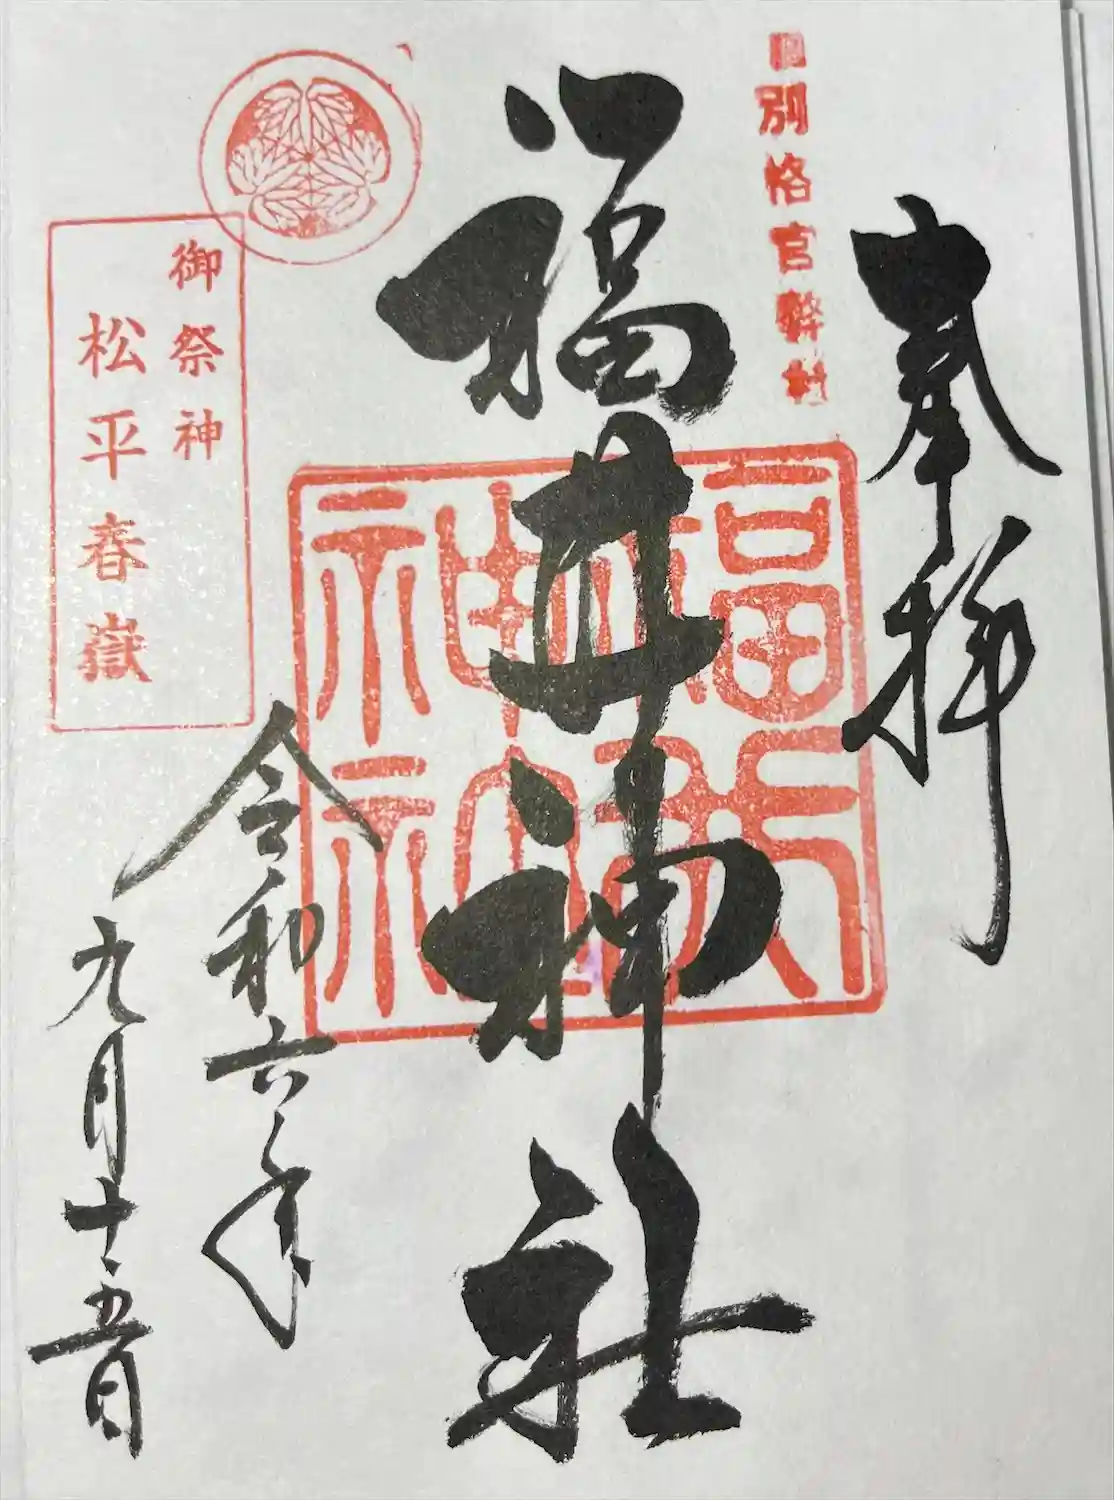 奉拝
旧別格官幣社
福井神社
福井神社
御祭神
松平春嶽
令和六年
九月十五日